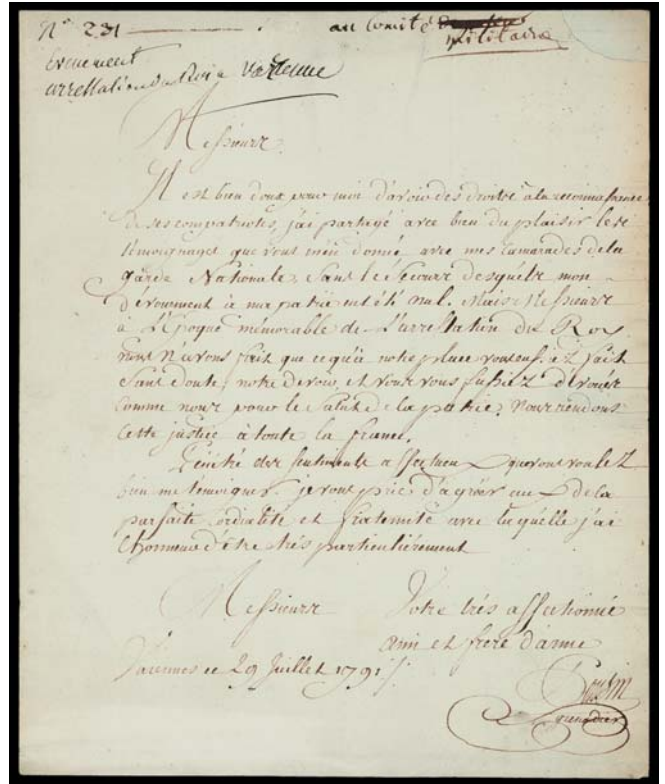 N° 231
au Comité
militaire
Evenement
arrestation du Roi a Varenne
Messieurs
Il est bien doux pour moi d'avoir des droits à la reconnaissance
de ses compatriotes, j'ai partagé avec bien du plaisir les
témoignages que vous m'en donné avec mes Camarades de la
garde Nationale, Sans le Secours desquels mon
devoument à ma patrie eut été nul. Mais Messieurs
à L'Epoque mémorable de L'arrestation du Roy
nous n'avons fait que ce qu'à notre place vous eussiez fait
Sans doute, notre devoir, et vous vous fussiez dévoués
comme nous pour le Salut de la patrie; Nous rendons
Cette justice à toute la france.
Pénétré des Sentiments affectueux que vous voulez
bien me témoigner. je vous prie d'agréer ceux de la
parfaite Cordialité et fraternité avec laquelle j'ai
L'honneur d'être trés particulièrement
Messieurs Votre trés affectionné
ami et frere d'arme
Varennes ce 29 Juillet 1791